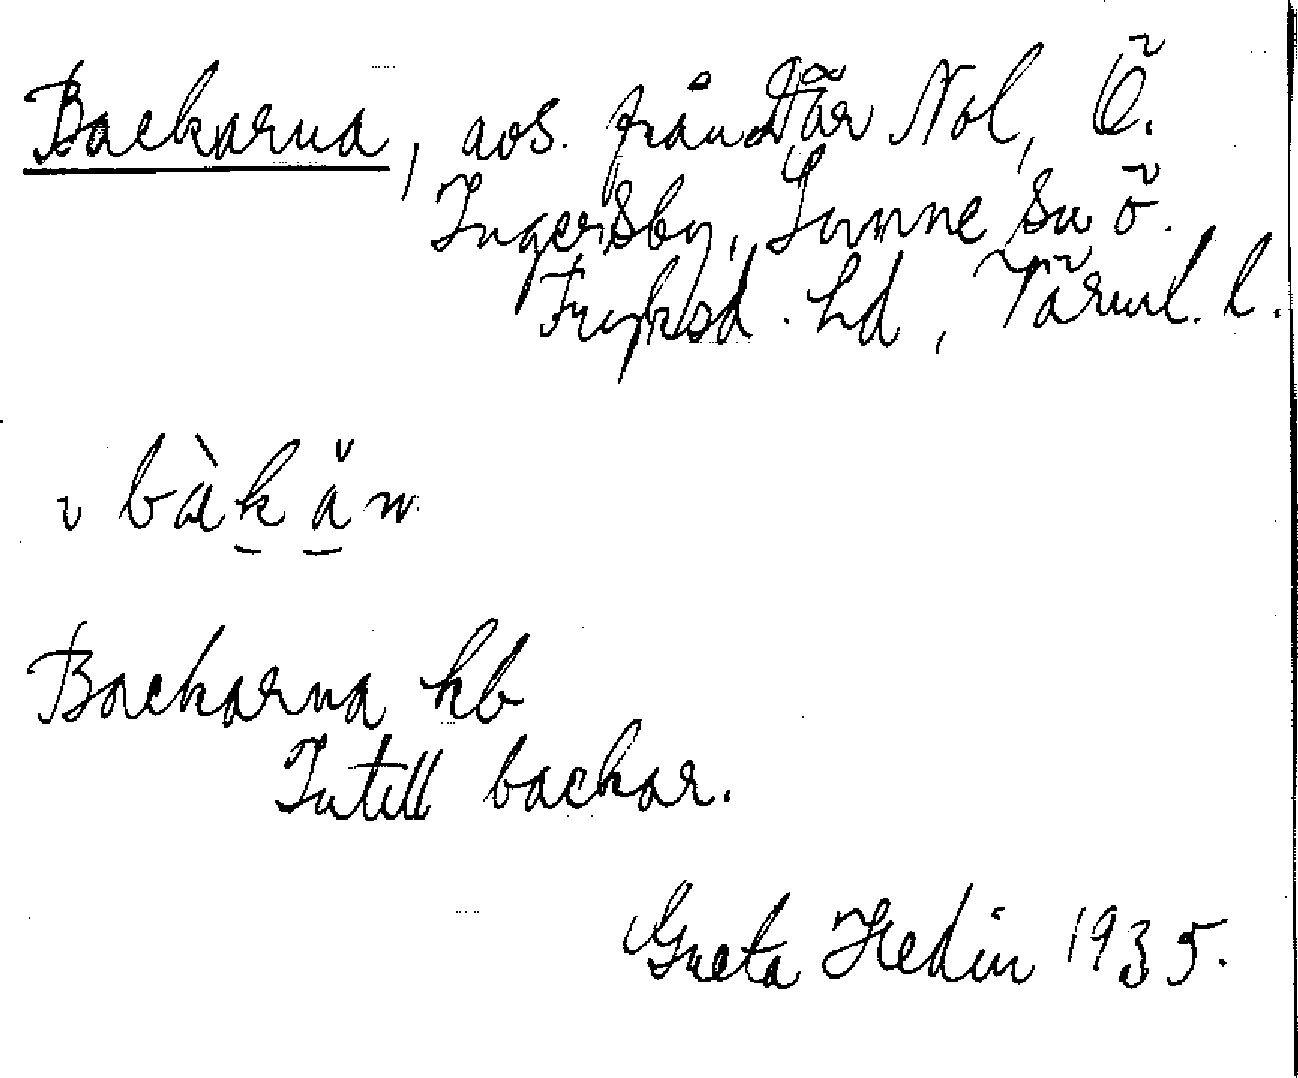 Backarna, avs. från Där Nol, Ö.
Ingersby, Sunne sn Ö.
Fryksd. hd, Värml. l.
ı bàk ă n
Backarna kb
Intill backar.
Greta Hedin 1935.